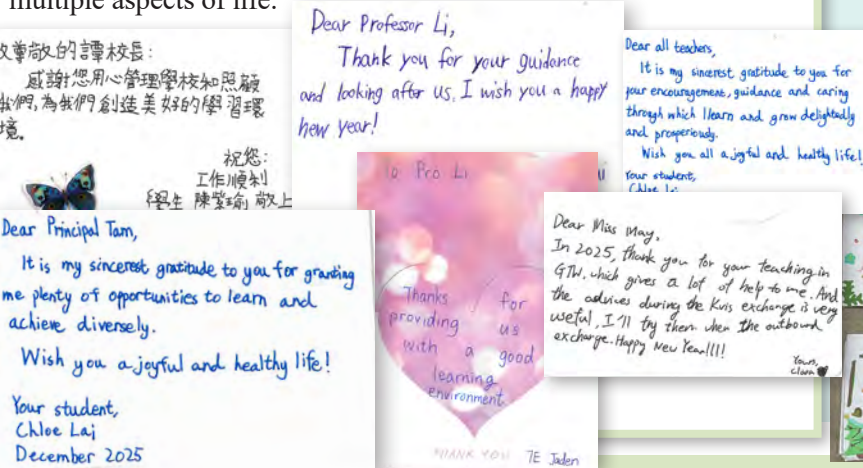 multiple aspects of life.
尊敬的譚校長:
感謝您用心管理學校和照顧
我們,為我們創造美好的學習環
境。
祝您:
工作順利
學生 陳紫瑜 敬上
Dear Professor Li,
Thank you for your guidance
and looking after us, I wish you a happy
new year!
Dear all teachers,
It is my sincerest gratitude to you for
your encouragement, guidance and caring
through which I learn and grow delightedly
and prosperiously.
Wish you all a joyful and healthy life!
Your student,
Chloe Lai
Dear Principal Tam,
It is my sincerest gratitude to you for granting
me plenty of opportunities to learn and
achieve diversely.
Wish you a joyful and healthy life!
Your student,
Chloe Lai
December 2025
To Pro Li
Thanks for
providing us
with a good
learning
environment.
THANK YOU 7E Jaden
Dear Miss May,
In 2025, thank you for your teaching in
GTW, which gives a lot of help to me. And
the advices during the Kvis exchange is very
useful, I'll try them when the outbound
exchange. Happy New Year!!!!
Yours,
Clara